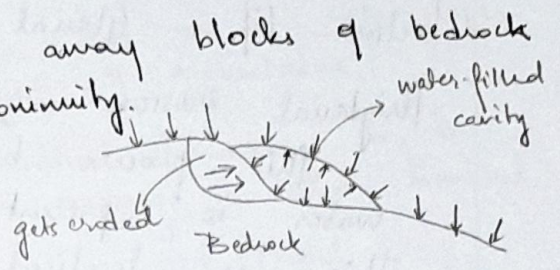 away blocks of bedrock
water-filled
cavity
gets eroded
Bedrock